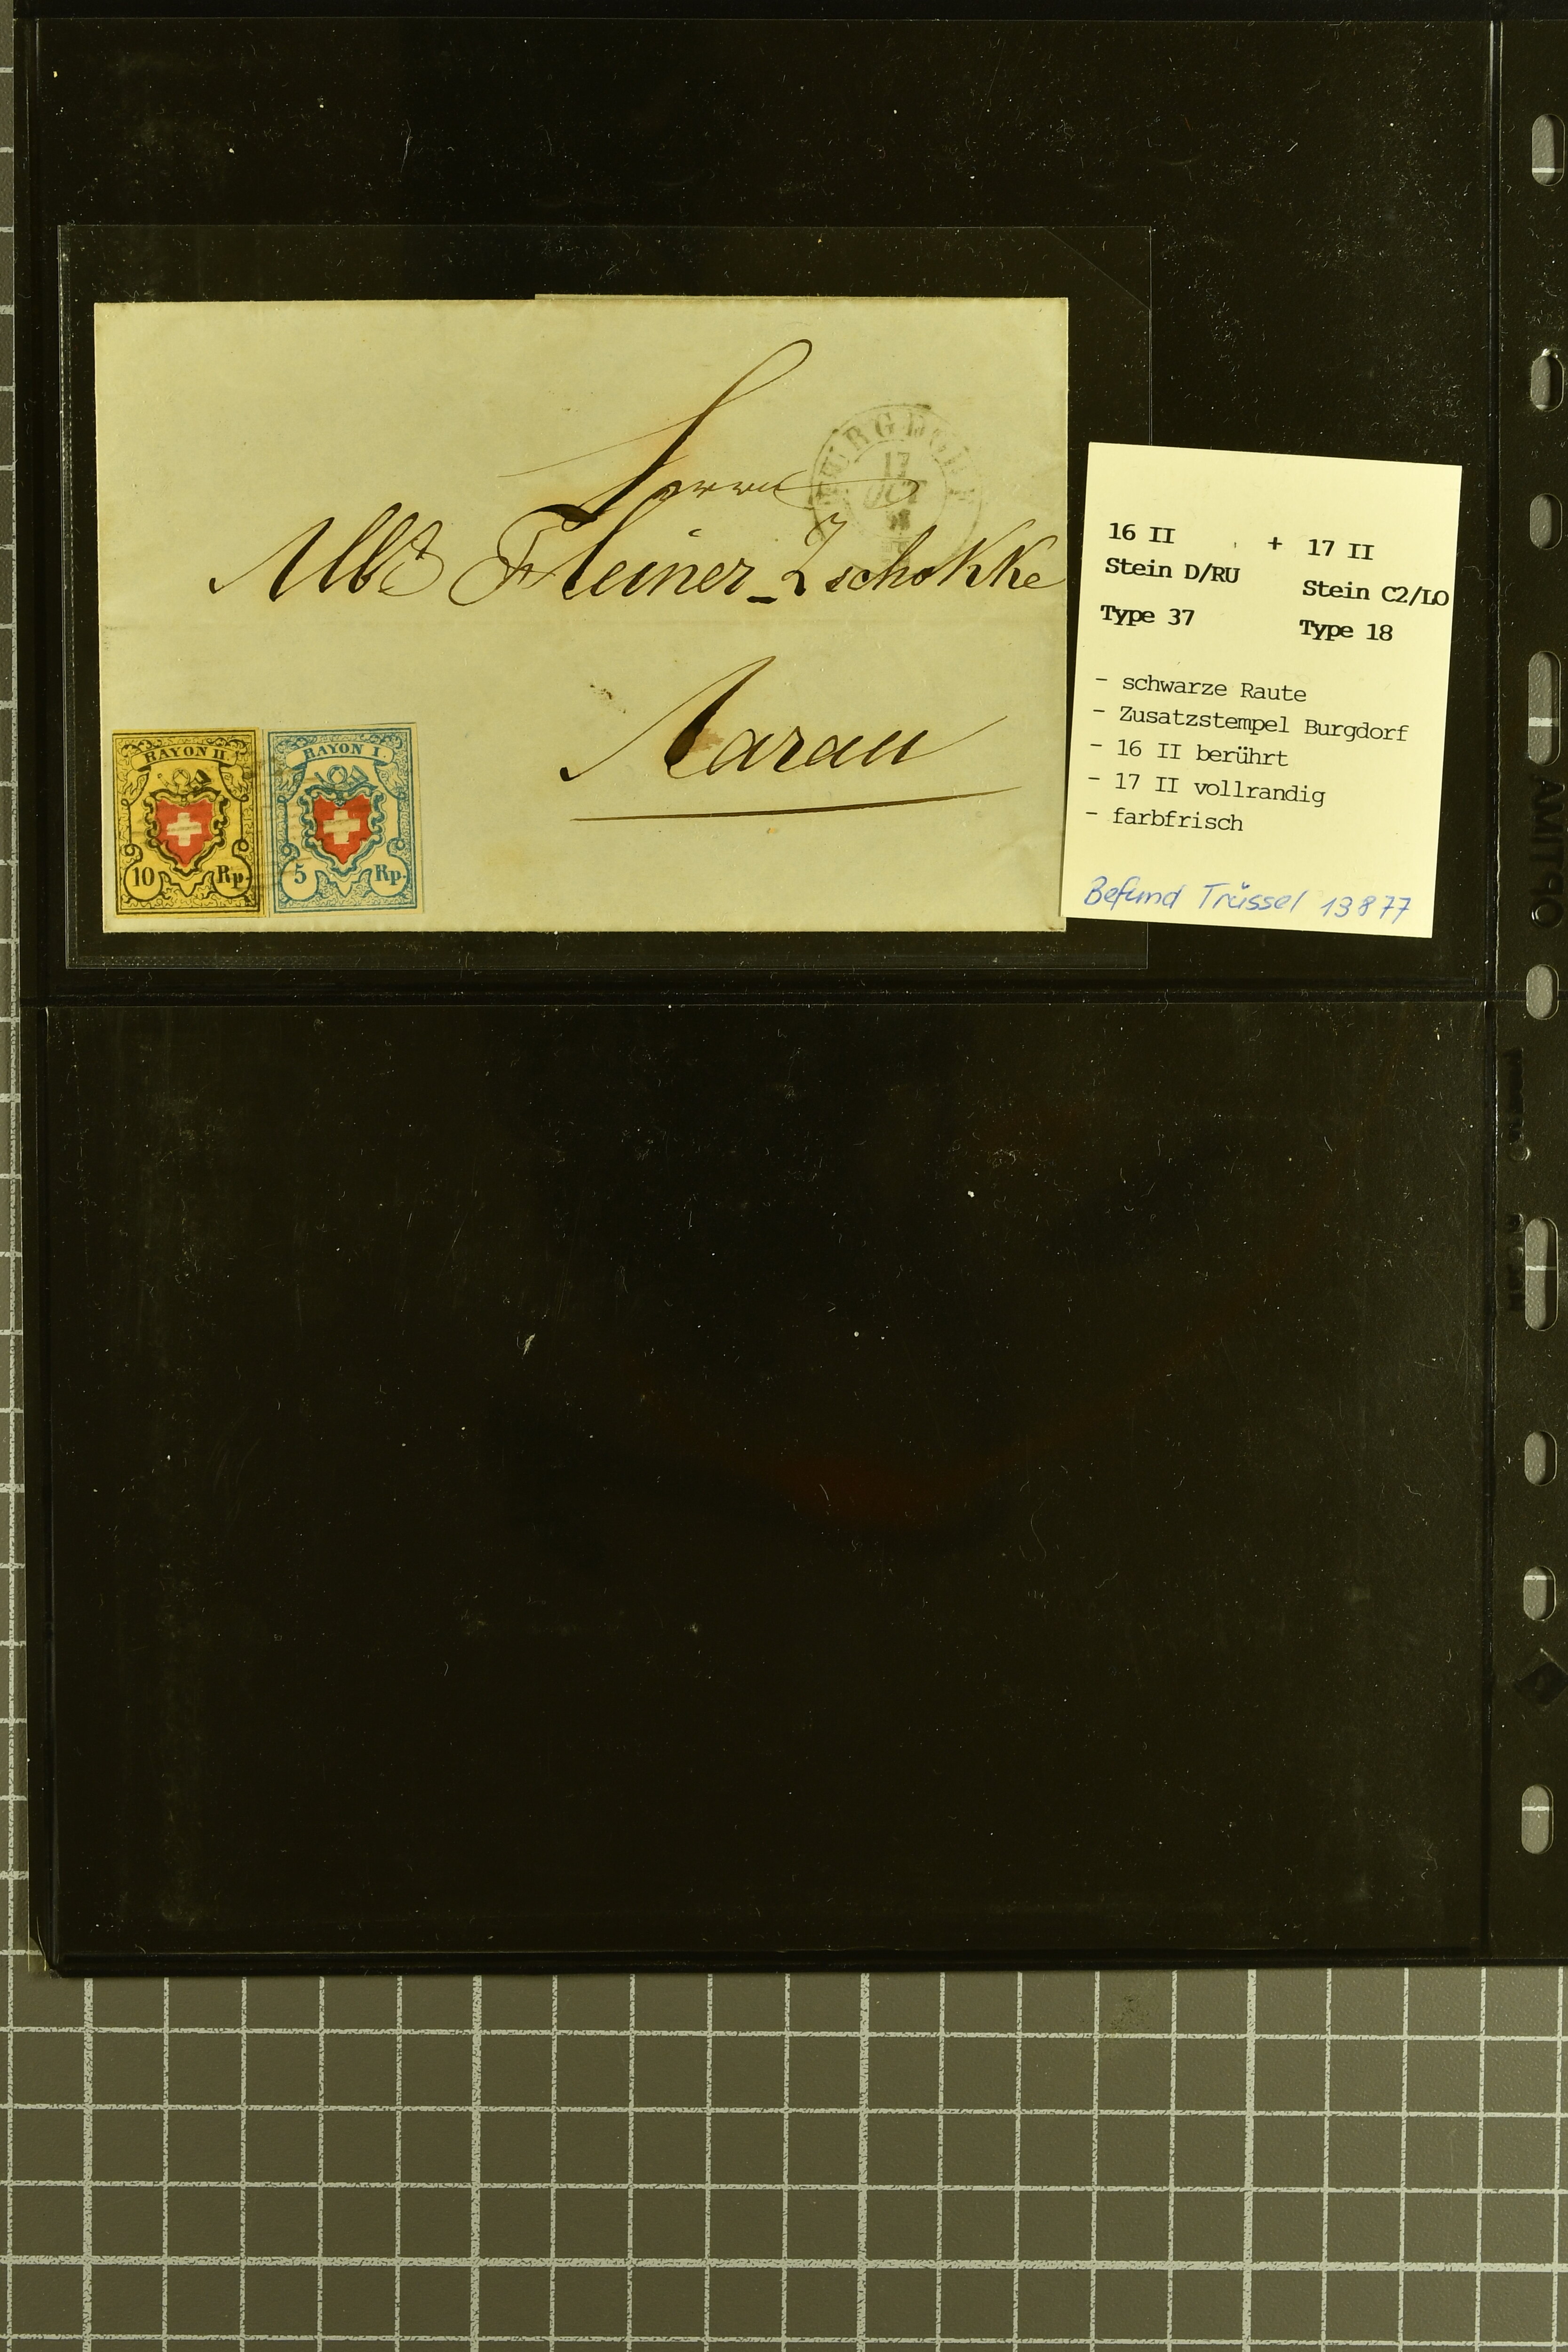 BURGDORF
17
OCT
Herrn
Alb. Fleiner-Zschokke
Aarau
RAYON II.
10 Rp.
RAYON I.
5 Rp.
16 II + 17 II
Stein D/RU Stein C2/LO
Type 37 Type 18
- schwarze Raute
- Zusatzstempel Burgdorf
- 16 II berührt
- 17 II vollrandig
- farbfrisch
Befund Trüssel 13877